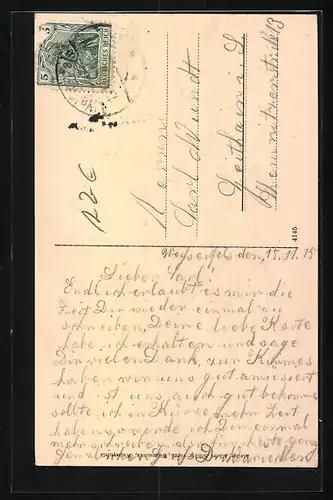 5 5
DEUTSCHES REICH
Herrn
Carl Schmidt
Geithain i. S
Chemnitzerstraße 13
4145
Weißenfels den, 15.11.15
Lieber Carl!
Endlich erlaubt es mir die
Zeit Dir wieder einmal zu
schreiben, Deine liebe Karte
habe ich erhalten und sage
Dir vielen Dank, zur Kirmes
haben wir uns gut amüsiert
und ist uns auch gut bekommen
sollte ich in Kürze mehr Zeit
haben, so werde ich Dir einmal
mehr schreiben, also für heute genug